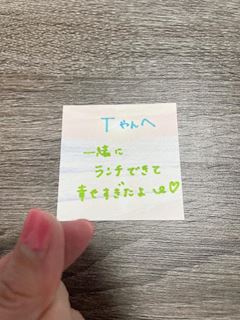 Tやんへ
一緒に
ランチできて
幸せすぎたよ